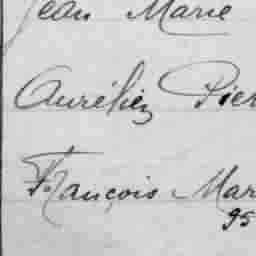 Jean Marie
Aurélien Pier
François Mar
95